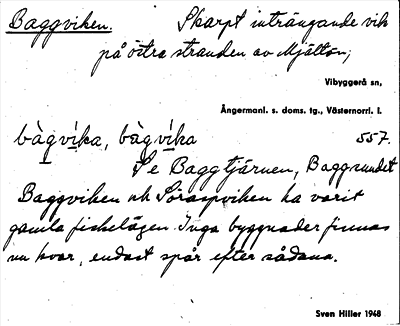 Baggviken. Skarpt inträngande vik
på östra stranden av Mjälton;
Vibyggerå sn,
Ångermanl. s. doms. tg., Västernorrl. l.
bàgvíka, bàgvíka 557.
Se Baggtjärnen, Baggsundet
Baggviken och Söraspviken ha varit
gamla fiskelägen. Inga byggnader finnas
nu kvar, endast spår efter sådana.
Sven Hiller 1948